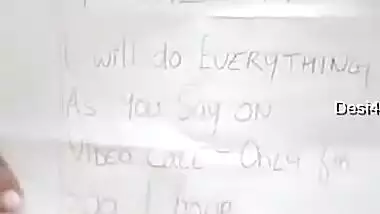 I will do EVERYTHING
As You Say ON
VIDEO CALL - Only for
1 hour
Desi4